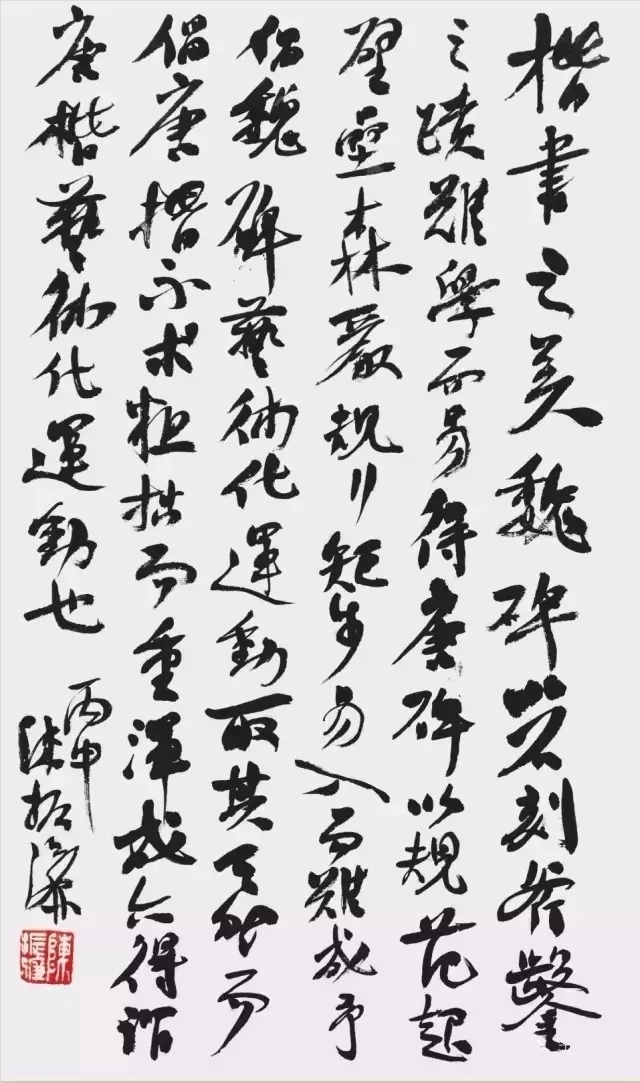 楷書之美魏碑若刻斧鑿
之蹟難學而易得唐碑以規范起
壁壘森嚴規行矩步易入而難成予
倡魏碑藝術化運動取其天然而
倡唐楷不求粗拙而重渾成亦得謂
唐楷藝術化運動也
丙申
陳振濂
陳振濂